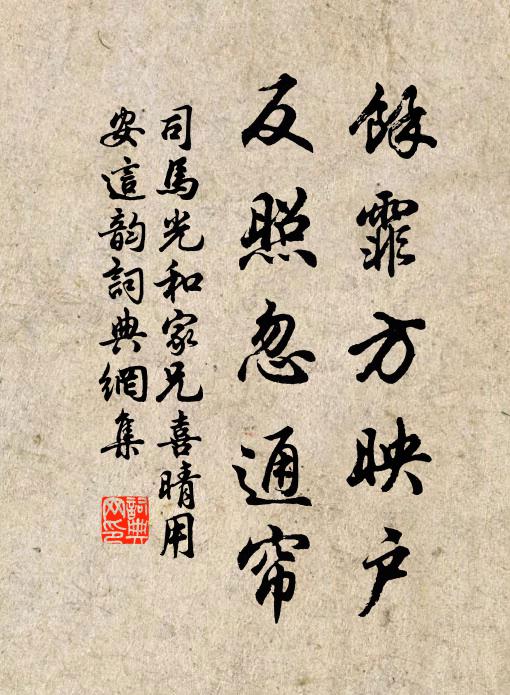 餘霏方映户
反照忽通帘
司馬光和家兄喜晴用
安這韵詞典網集
詞典
网印